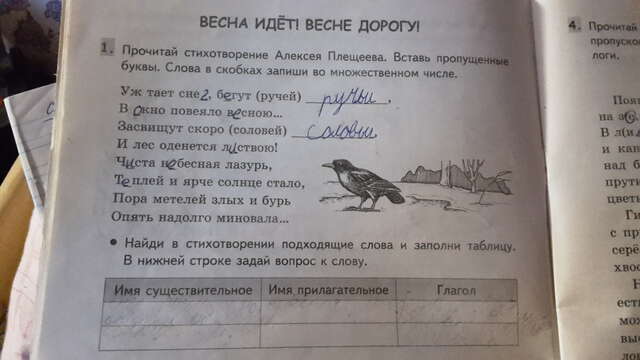 ВЕСНА ИДЁТ! ВЕСНЕ ДОРОГУ!
1. Прочитай стихотворение Алексея Плещеева. Вставь пропущенные
буквы. Слова в скобках запиши во множественном числе.
Уж тает снег, бегут (ручей) ручьи,
В окно повеяло весною...
Засвищут скоро (соловей) соловьи
И лес оденется листвою!
Чиста небесная лазурь,
Теплей и ярче солнце стало,
Пора метелей злых и бурь
Опять надолго миновала...
• Найди в стихотворении подходящие слова и заполни таблицу.
В нижней строке задай вопрос к слову.
Имя существительное Имя прилагательное Глагол
4. Прочитай
пропуско
логи.
Поя
на з
В л(и
и кан
над б
прути
цветь
Ги
с пр
серё
хвос
Н
есть
мож
выс